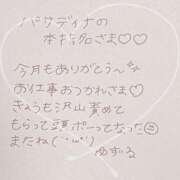 パサディナの
本指名さま♡♡
今月もありがとう〜
お仕事おつかれさま♡
きょうも沢山責めて
もらって頭ポーってなった
またね(˙ᵕ˙)
ゆずる